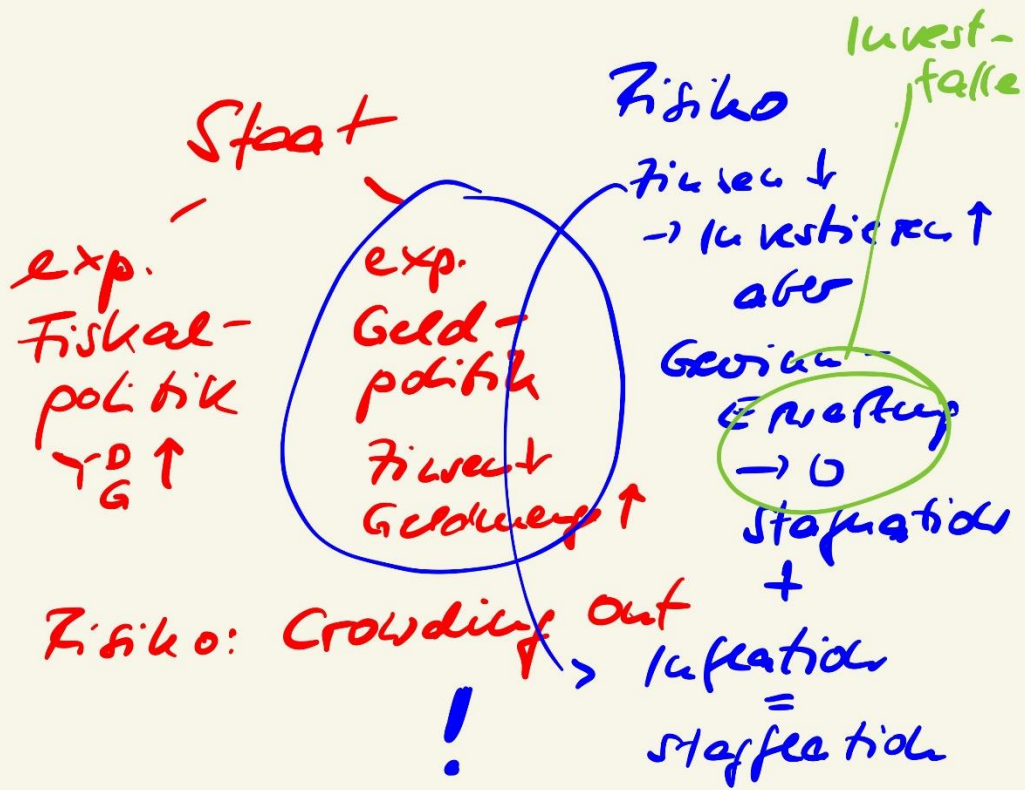 Staat
exp.
Fiskal-
politik
Y D G ↑
exp.
Geld-
politik
Zinsen ↓
Geldmenge ↑
Risiko: Crowding out
!
Risiko
Zinsen ↓
→ Investieren ↑
aber
Gewinn-
Erwartung
→ 0
Stagnation
+
Inflation
=
Stagflation
Invest-
falle